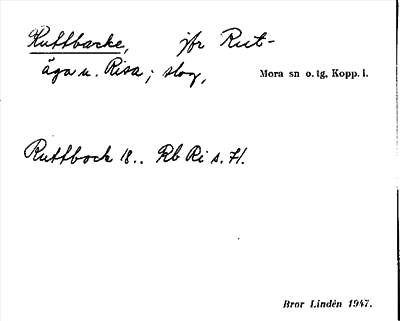 Ruttbacke, jfr Rut-
äga u. Risa; skog,
Mora sn o. tg, Kopp. l.
Ruttbock 18.. Rb Ri s. 71.
Bror Lindén 1947.